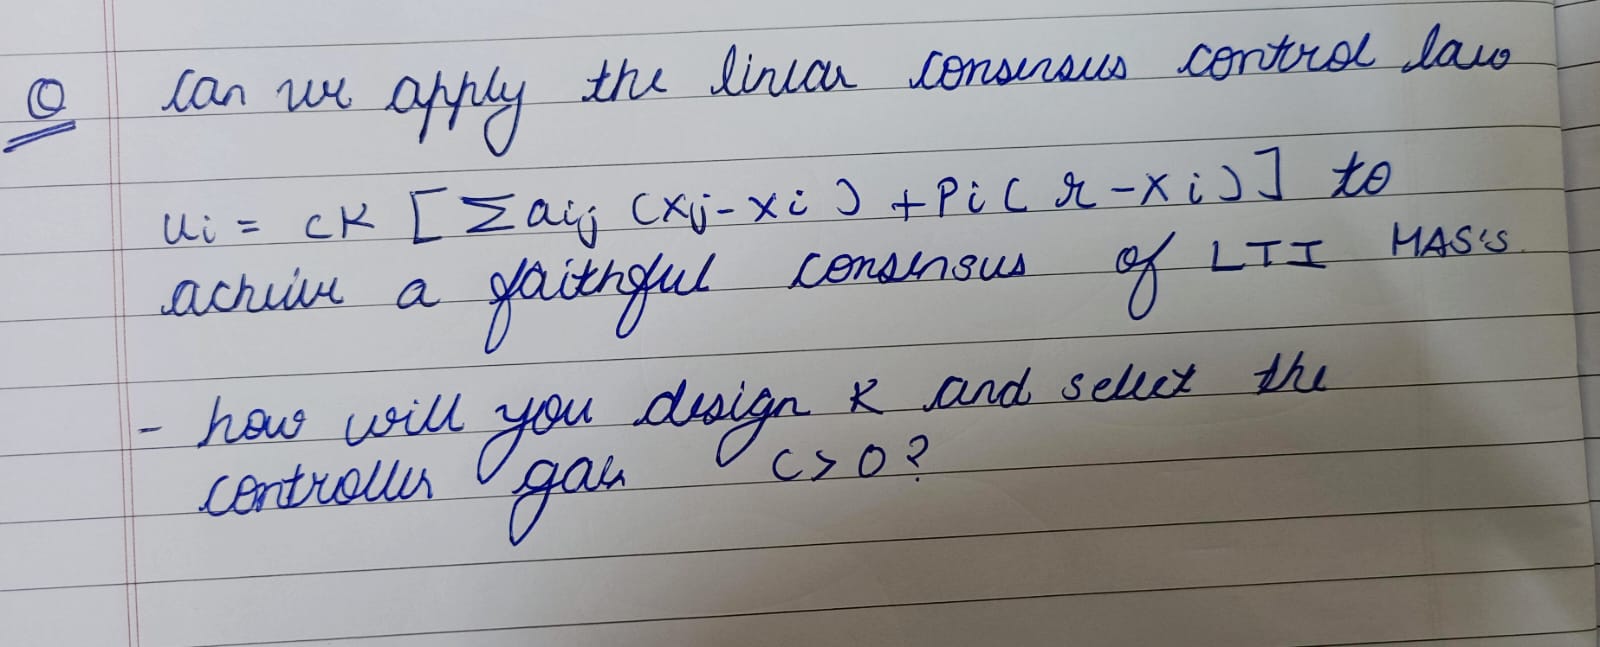 Q can we apply the linear consensus control law
ui = cK [ Σ aij (xj - xi) + Pi ( r - xi) ] to
acheive a faithful consensus of LTI MAS's.
- how will you design K and select the
controller gain c > 0 ?